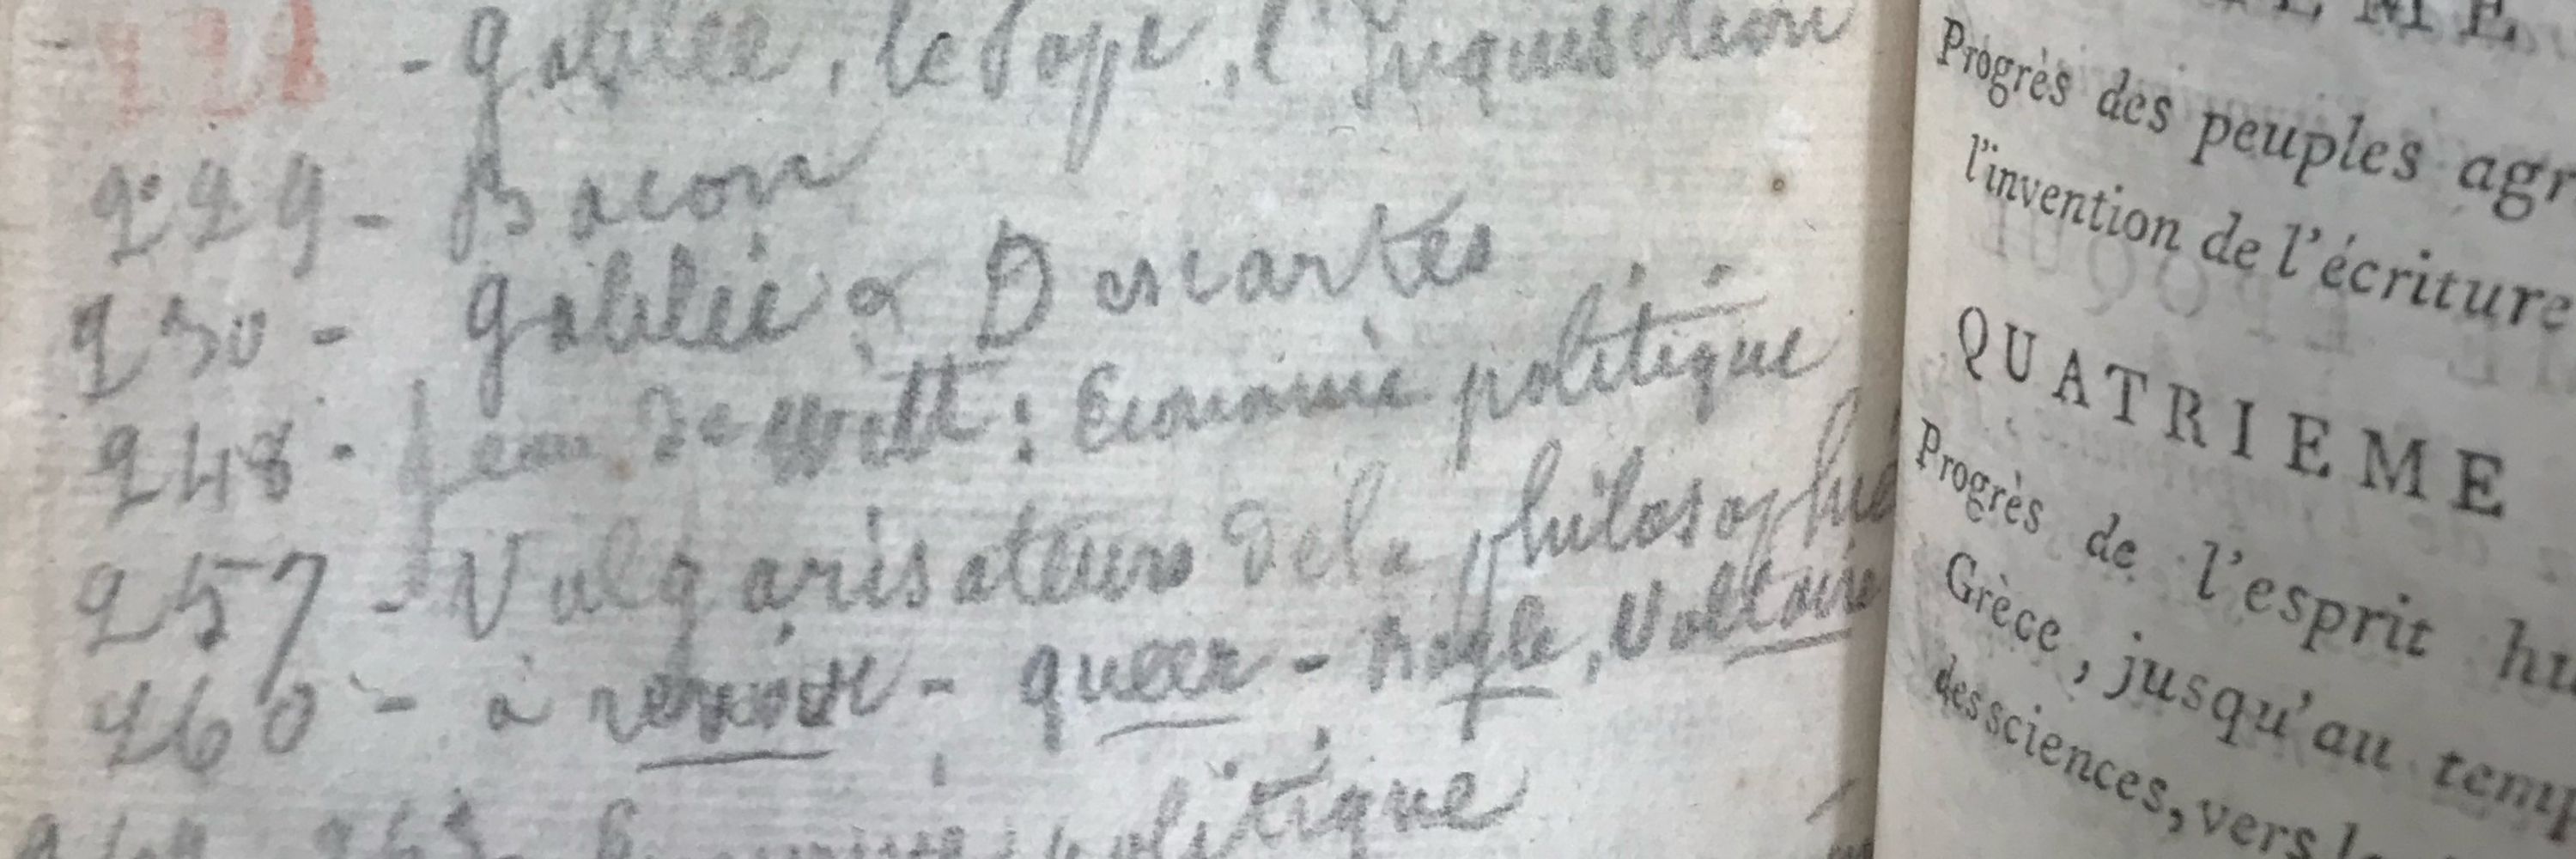 - Galilée, le Pape, l'Inquisition
229 - Bacon
230 - Galilée & Descartes
248 - Jean de Witt : Economie politique
257 - Vulgarisateurs de la philosophie
260 - à revoir - queer - Bayle, Voltaire
Economie politique
EME
Progrès des peuples agr
l'invention de l'écriture
QUATRIEME
Progrès de l'esprit hu
Grèce, jusqu'au temp
des sciences, vers le